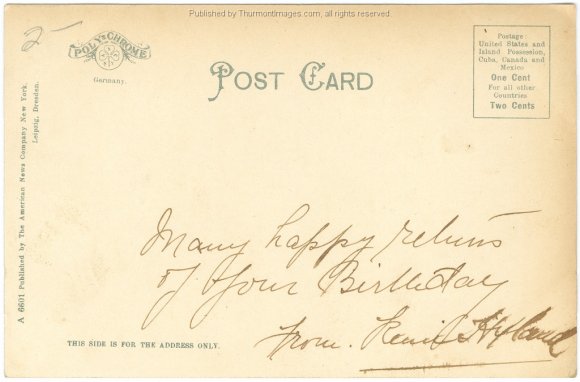 Published by Thurmontimages.com, all rights reserved.
2-
POLY-CHROME
Germany.
POST CARD
Postage
United States and
Island Possession,
Cuba, Canada and
Mexico
One Cent
For all other
Countries
Two Cents
A 6601 Published by The American News Company New York.
Leipzig, Dresden.
Many happy returns
of Your Birthday
From
THIS SIDE IS FOR THE ADDRESS ONLY.